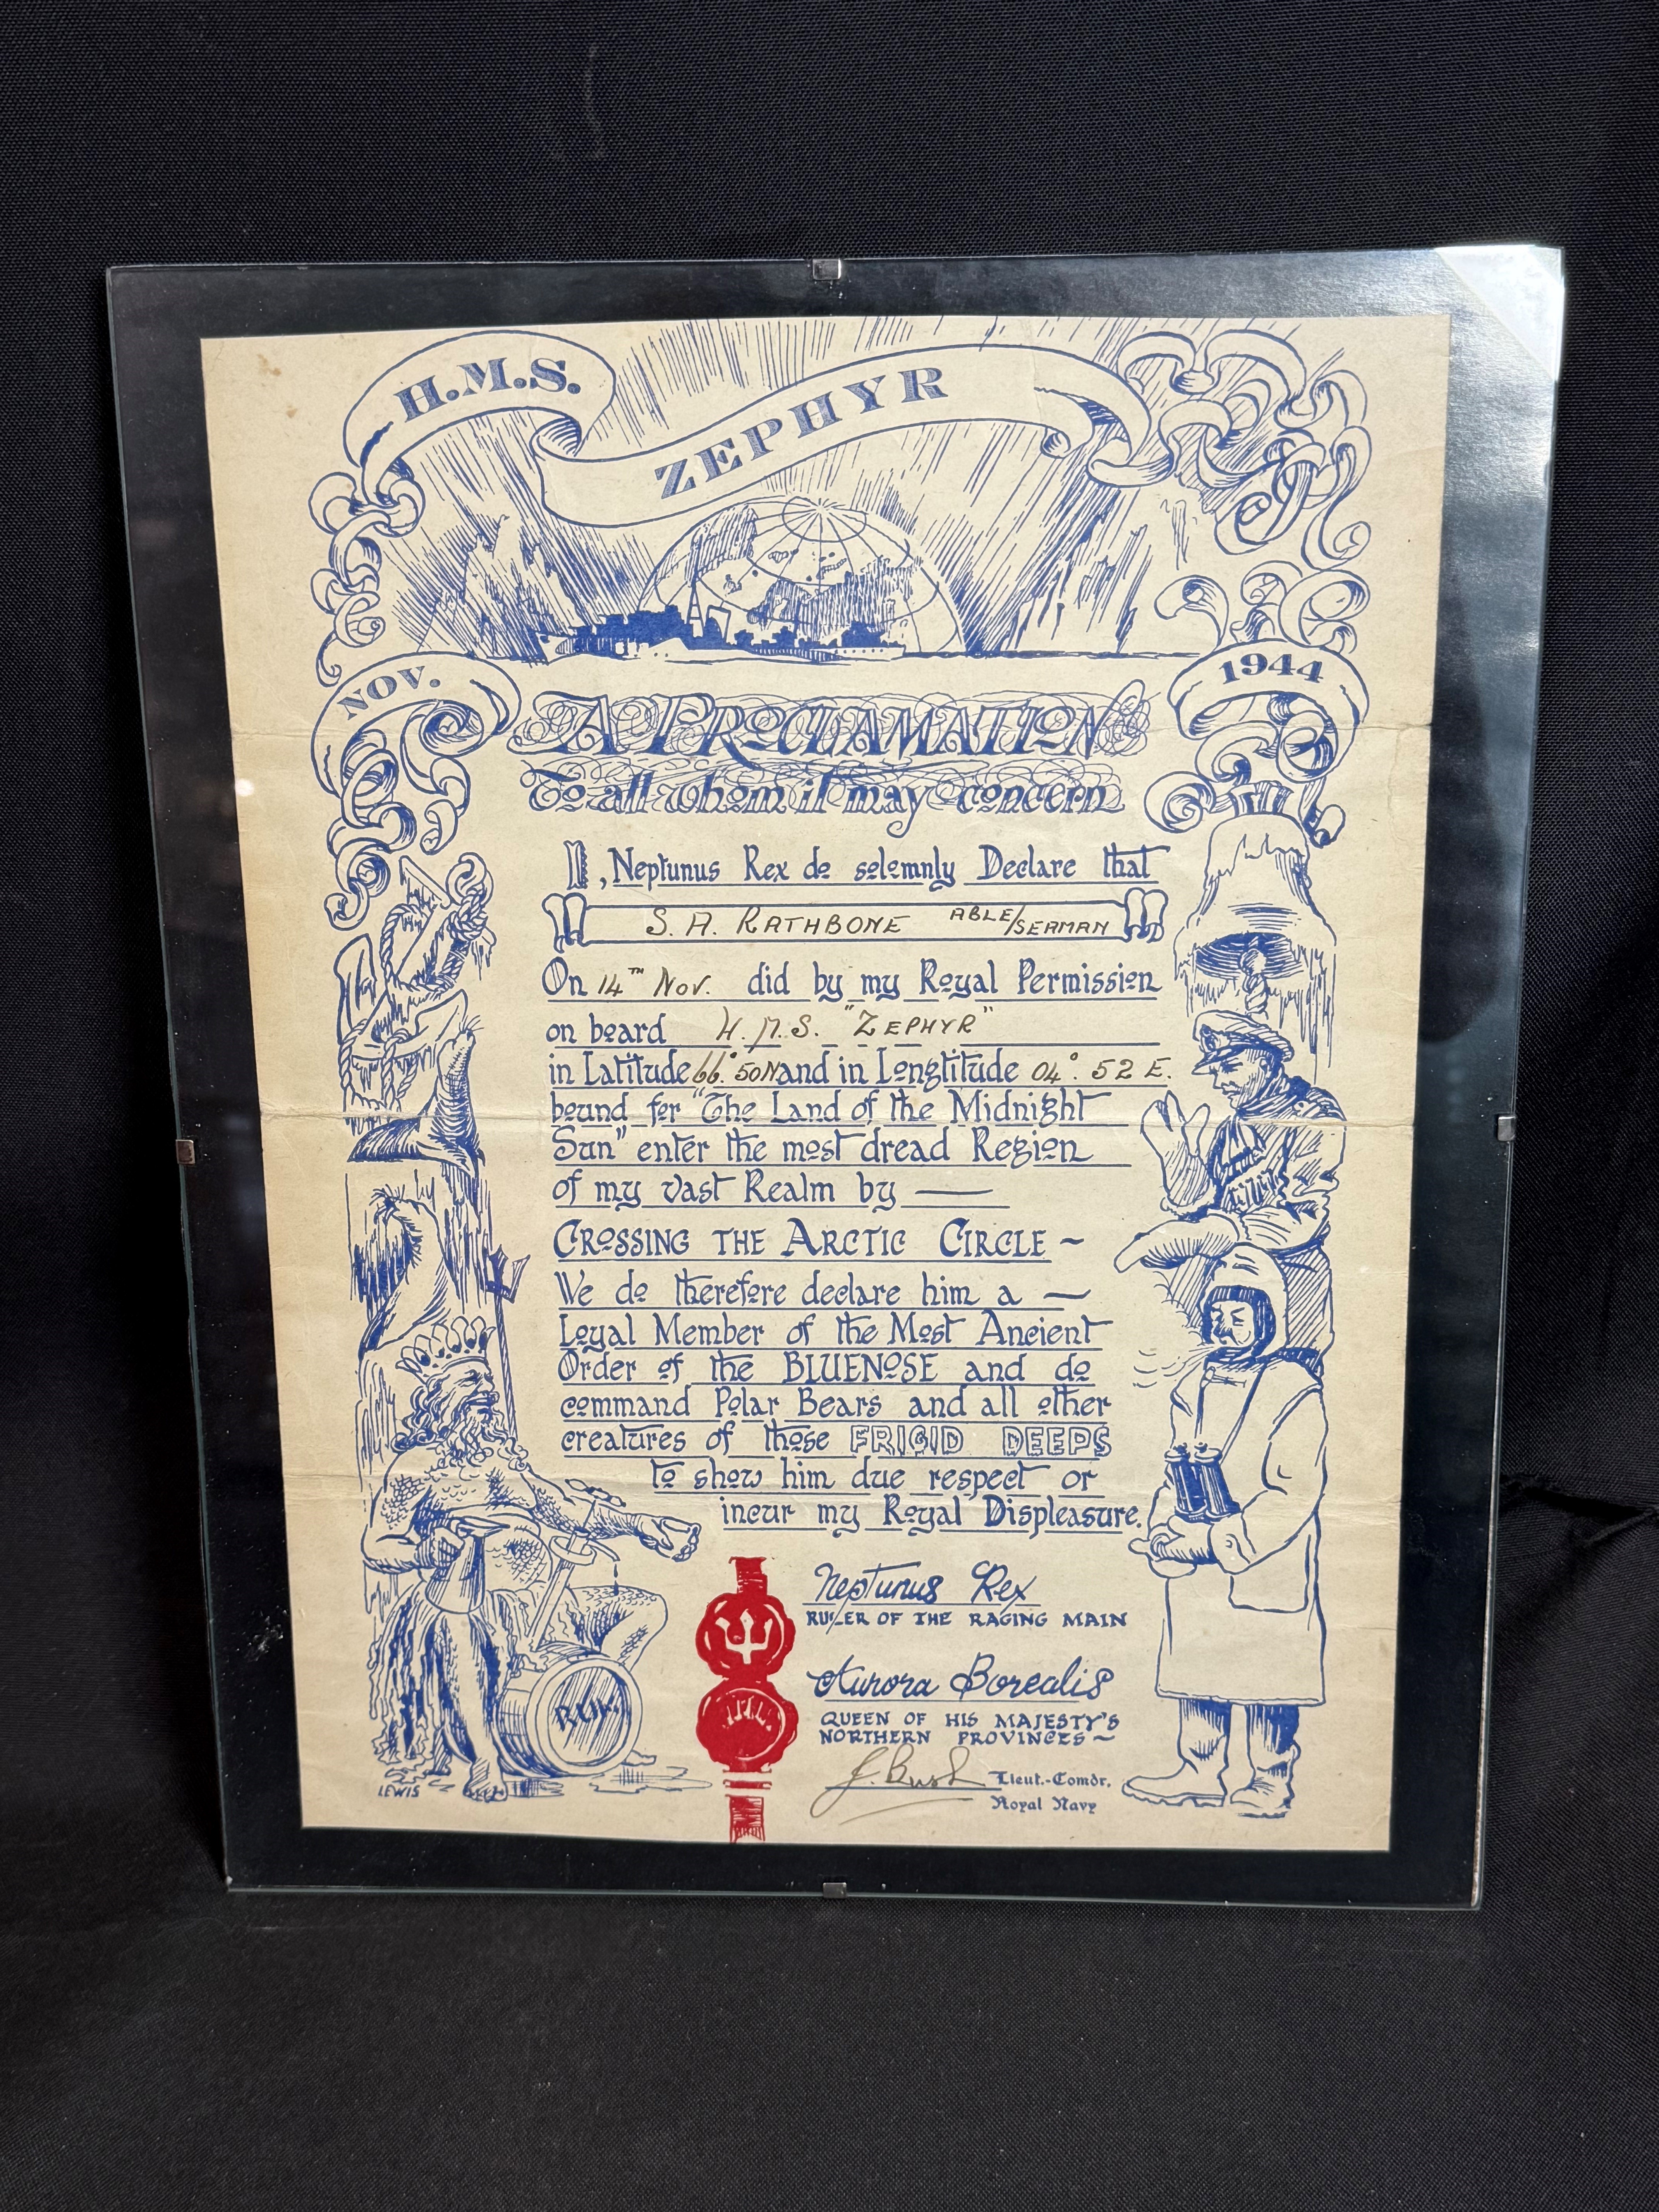 H.M.S.
ZEPHYR
NOV.
1944
A PROCLAMATION
To all whom it may concern
I, Neptunus Rex do solemnly Declare that
S. A. RATHBONE ABLE/SEAMAN
On 14TH Nov. did by my Royal Permission
on board H.M.S. "ZEPHYR"
in Latitude 66° 50N and in Longtitude 04° 52 E.
bound for "The Land of the Midnight
Sun" enter the most dread Region
of my vast Realm by —
CROSSING THE ARCTIC CIRCLE ~
We do therefore declare him a —
Loyal Member of the Most Ancient
Order of the BLUENOSE and do
command Polar Bears and all other
creatures of those FRIGID DEEPS
to show him due respect or
incur my Royal Displeasure.
Neptunus Rex
RULER OF THE RAGING MAIN
Aurora Borealis
QUEEN OF HIS MAJESTY'S
NORTHERN PROVINCES ~
J. Bush Lieut.-Comdr.
Royal Navy
RUM
LEWIS